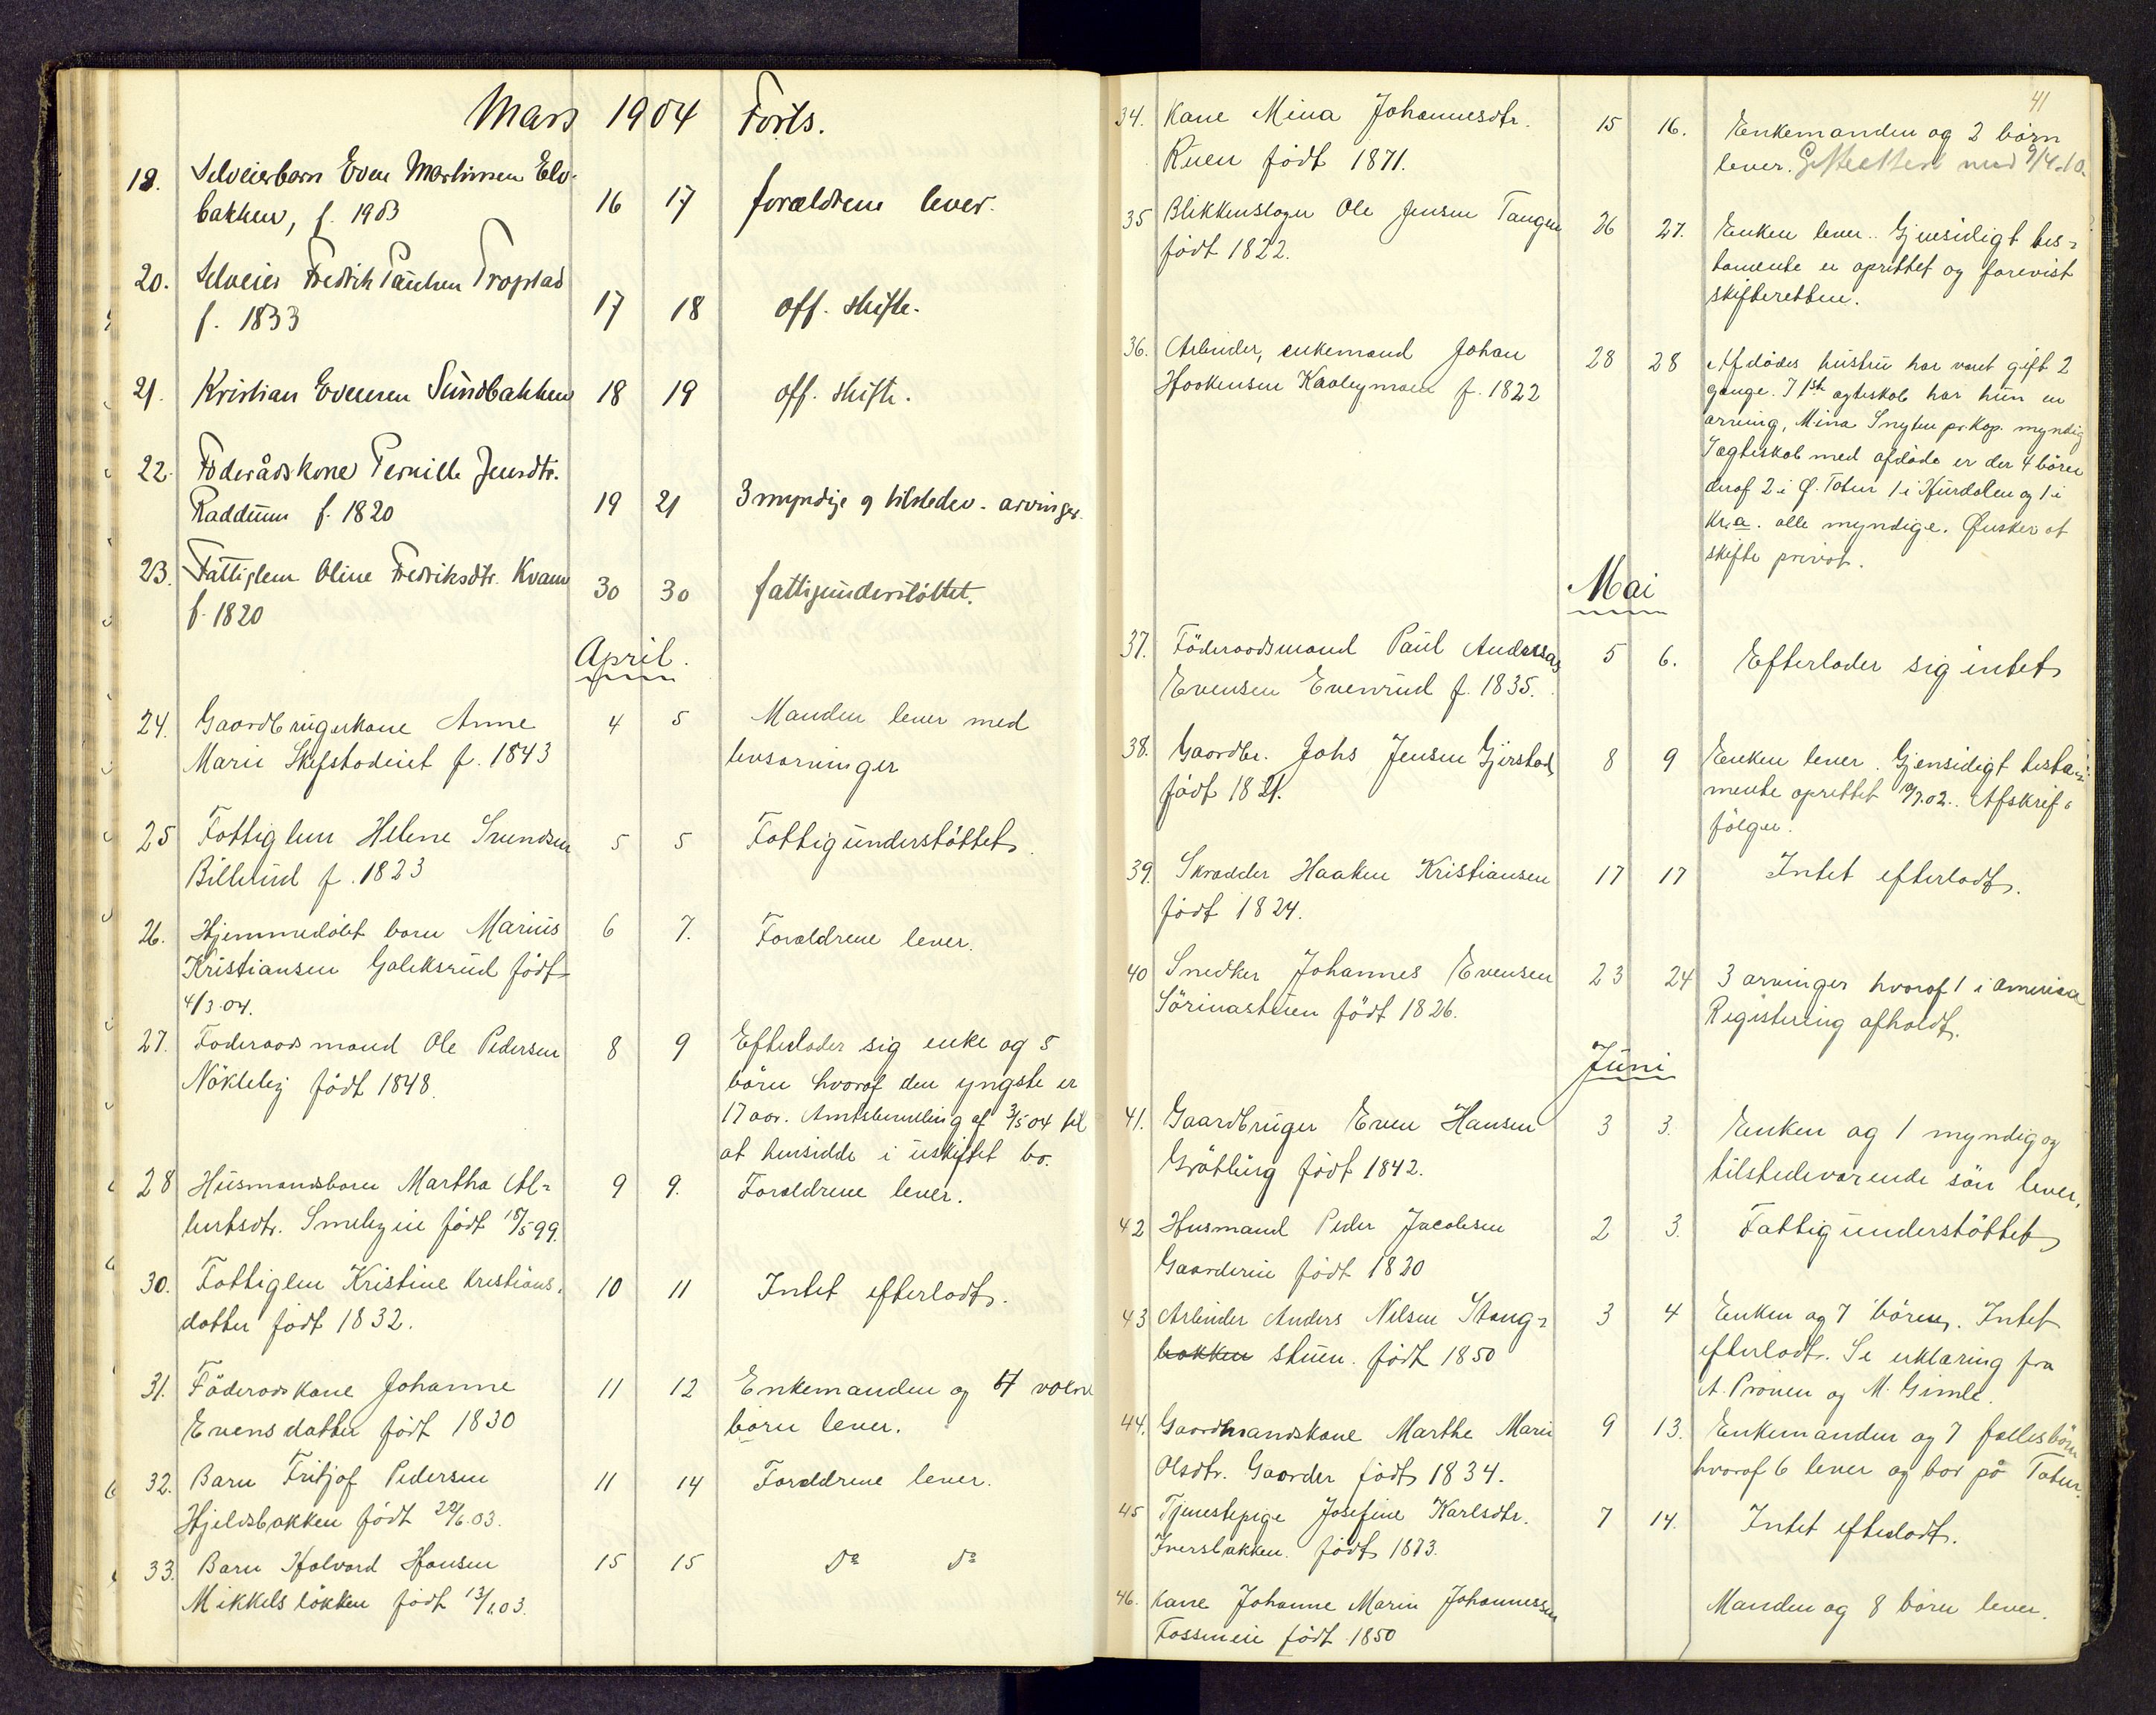 Mars 1904 Forts.
18. Selveierbarn Even Martinsen Elv-
bakken, f. 1903 16 17 forældrene lever.
20. Selveier Fredrik Paulsen Tropstad
f. 1833 17 18 off. skifte.
21. Kristian Evensen Sundbakken 18 19 off. skifte.
22. Føderådskone Pernille Jensdtr.
Raddum f. 1820 19 21 3 myndige og tilstedev. arvinger.
23. Fattiglem Oline Fredriksdtr. Kvam
f. 1820 30 30 fattigunderstöttet.
April.
24. Gaardbrugerkone Anne 4 5 Manden lever med
Marie Skefstadeiet f. 1843 livsarvinger
25 Fattiglem Helene Svendsen 5 5 Fattigunderstöttet.
Billerud f. 1823
26. Hjemmedöbt barn Marius 6 7. Forældrene lever.
Kristiansen Galeksrud födt
4/3.04.
27. Föderaadsmand Ole Pedersen 8 9 Efterlader sig enke og 5
Nökleby födt 1848. börn hvoraf den yngste er
17 aar. Amtsbevilling af 3/5 04 til
at hensidde i uskiftet bo.
28 Husmandsbarn Martha Al- 9 9. Forældrene lever.
bertsdtr. Smebyeie födt 15/5 99.
30. Fattiglem Kristine Kristians- 10 11 Intet efterladt.
datter födt 1832.
31. Föderaadskone Johanne 11 12 Enkemanden og 4 voksne
Evensdatter födt 1830 börn lever.
32. Barn Fritjof Pedersen 11 14 Forældrene lever.
Hjeldsbakken födt 20/6.03.
33. Barn Halvard Hansen 15 15 Do Do
Mikkelslökken födt 13/1.03.
41
34. Kone Mina Johannesdtr. 15 16. Enkemanden og 2 börn
Ruen födt 1871. lever. med 9/4.10.
35 Blikkenslager Ole Jensen Tangen 26 27. Enken lever. Gjensidigt tes-
födt 1822. tamente er oprettet og forevist
skifteretten.
36. Arbeider, enkemand Johan 28 28 Afdödes hustru har været gift 2
Haakensen Kaalsymoen f. 1822 gange. I 1ste ægteskab har hun en
arving, Mina Snyten pr. Kap. myndig
I ægteskab med afdöde er der 4 börn
deraf 2 i Ø. Toten 1 i Hurdalen og 1 i
Kr.a. alle myndige. Ønsker at
skifte privat.
Mai
37. Föderaadsmand Paul Andreas 5 6. Efterlader sig intet
Evensen Evenrud f. 1835.
38. Gaardbr. Johs Jensen Gjerstad 8 9 Enken lever. Gjensidigt testa-
födt 1821. mente oprettet 19/7.02. Afskrift
fölger.
39. Skrædder Haaken Kristiansen 17 17 Intet efterladt.
födt 1824.
40 Snedker Johannes Evensen 23 24 3 arvinger hvoraf 1 i America
Sörinastuen födt 1826. Registering afholdt.
Juni
41. Gaardbruger Even Hansen 3 3. Enken og 1 myndig og
Gröthing födt 1842. tilstedeværende sön lever.
42 Husmand Peder Jacobsen 2 3. Fattigunderstöttet
Gaardereie födt 1820
43 Arbeider Anders Nilsen Stang- 3 4 Enken og 7 börn. Intet
bakken stuen. födt 1850 efterladt. Se erklæring fra
A. Pröven og M. Gimle.
44. Gaardmandskone Marthe Marie 9 13. Enkemanden og 7 fællesbörn
Olsdtr. Gaarder födt 1834. hvoraf 6 lever og bor på Toten.
45 Tjenestepige Josefine Karlsdtr. 7 14. Intet efterladt.
Iversbakken. födt 1873.
46. Kone Johanne Marie Johannessen Manden og 8 börn lever.
Fosseneie födt 1850